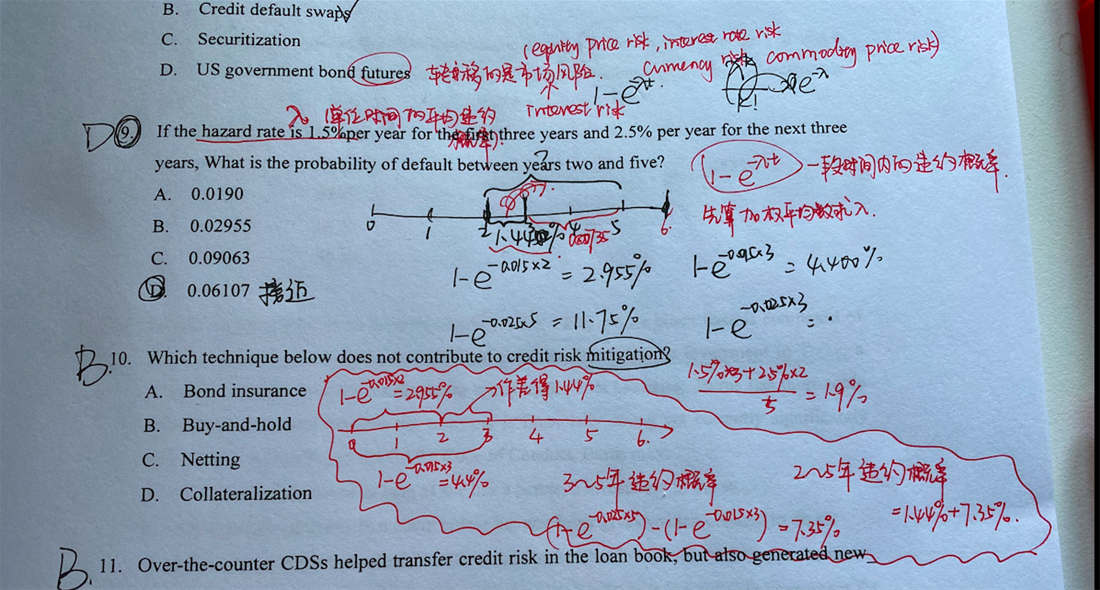 B. Credit default swaps
C. Securitization
(equity price risk, interest rate risk
D. US government bond futures 转移的是市场风险. currency risk, commodity price risk)
1-e^-λt
interest risk
λ 单位时间的平均违约概率).
D 9. If the hazard rate is 1.5% per year for the first three years and 2.5% per year for the next three
years, What is the probability of default between years two and five?
1-e^-λt 一段时间内的违约概率.
A. 0.0190
先算加权平均数求λ.
0 1 2 3 4 5 6.
B. 0.02955
1-e^-0.015×2 = 2.955%
1-e^-0.015×3 = 4.400%
C. 0.09063
D. 0.06107 接近
1-e^-0.025×5 = 11.75%
1-e^-0.025×3 =
B. 10. Which technique below does not contribute to credit risk mitigation?
1.5%×3+2.5%×2
5
=1.9%
A. Bond insurance
1-e^-0.015×2 =2.955% 作差得1.44%
B. Buy-and-hold
0 1 2 3 4 5 6.
C. Netting
1-e^-0.015×3 =4.4%
3~5年违约概率
2~5年违约概率
D. Collateralization
(1-e^-0.025×5)-(1-e^-0.015×3)=7.35%
=1.44%+7.35%.
B. 11. Over-the-counter CDSs helped transfer credit risk in the loan book, but also generated new